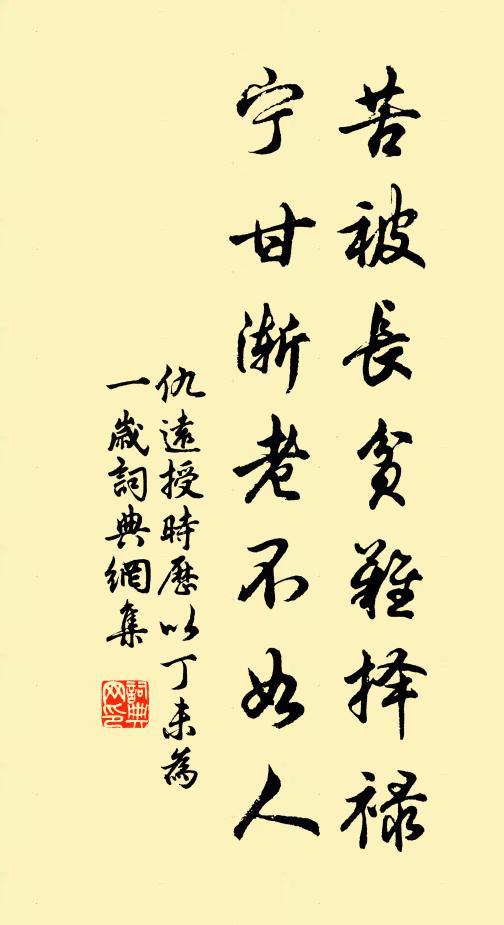 苦被長貧難择禄
宁甘渐老不如人
仇遠授時歷以丁未為
一歲詞典網集
詞典网印